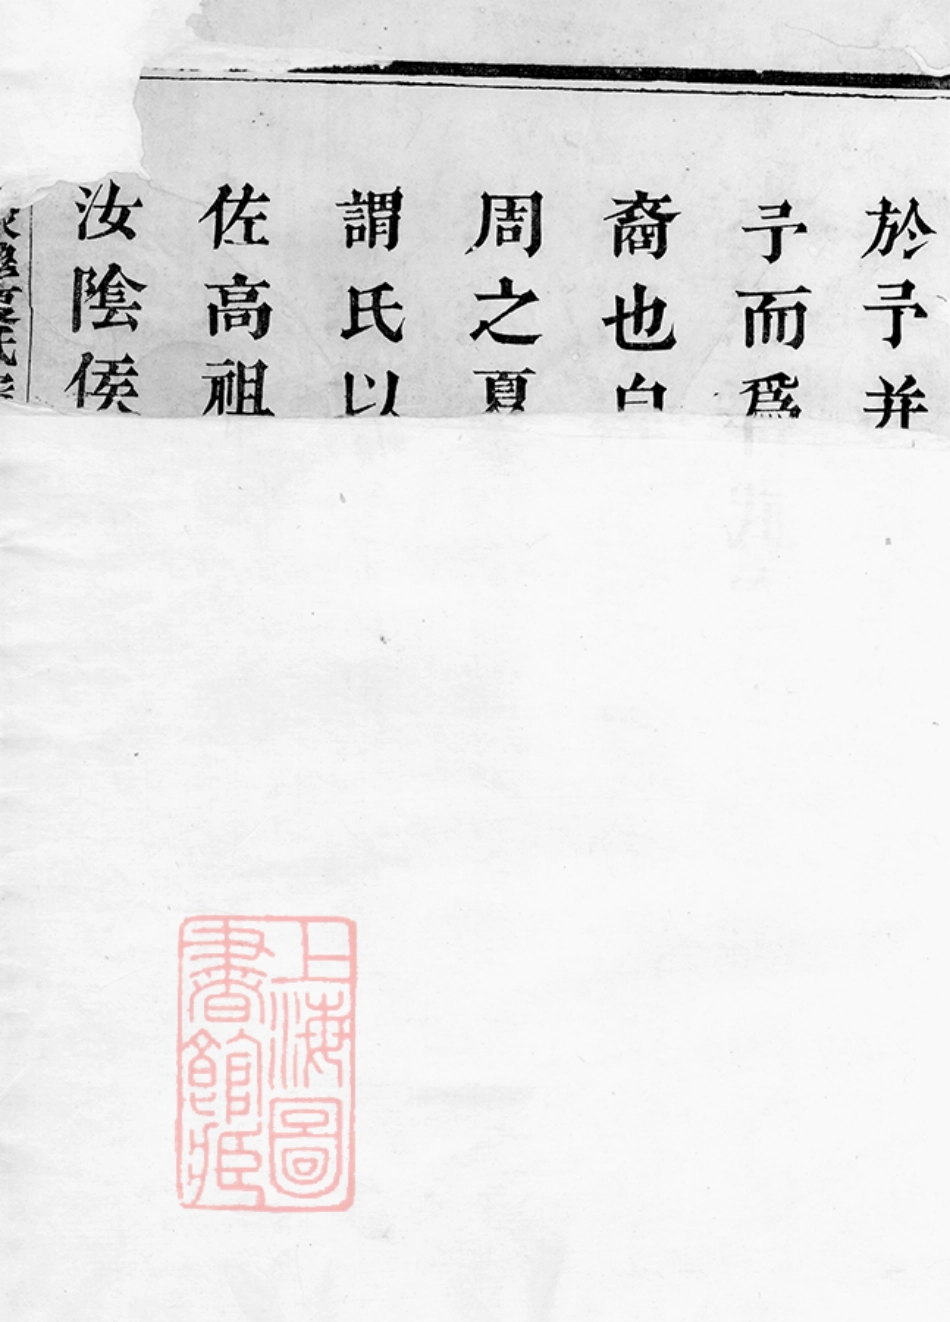 於予并
予而爲
裔也
周之夏
謂氏以
佐高祖
汝陰侯
氏
上海圖
書館藏